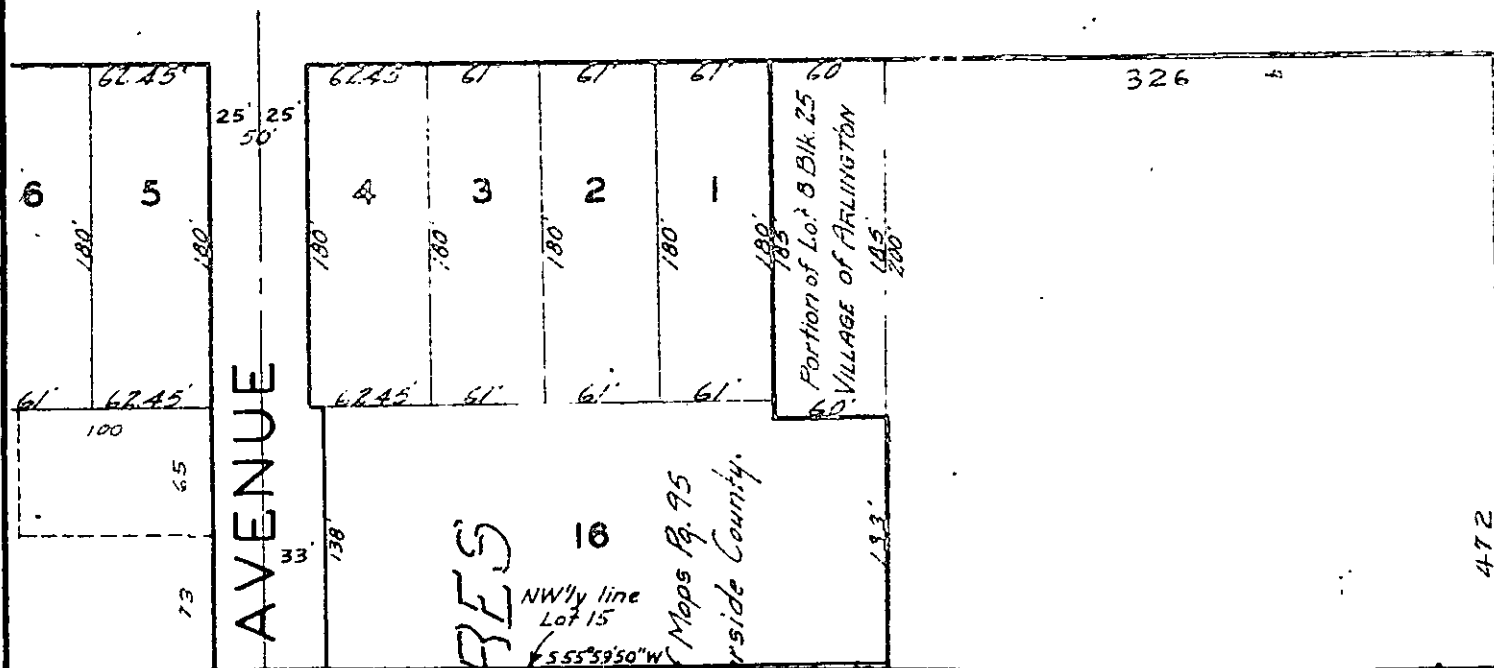 62.45'
62.45'
61'
61'
61'
60'
326
25' 25'
50'
6
5
4
3
2
1
180'
180'
180'
180'
180'
180'
180'
185'
Portion of Lot 8 Blk. 25
VILLAGE of ARLINGTON
185'
200'
61'
62.45'
62.45'
61'
61'
61'
60'
100
65
73
AVENUE
33'
138'
16
NW'ly line
Lot 15
S55°59'50"W
Maps Pg. 95
rside County.
193'
472